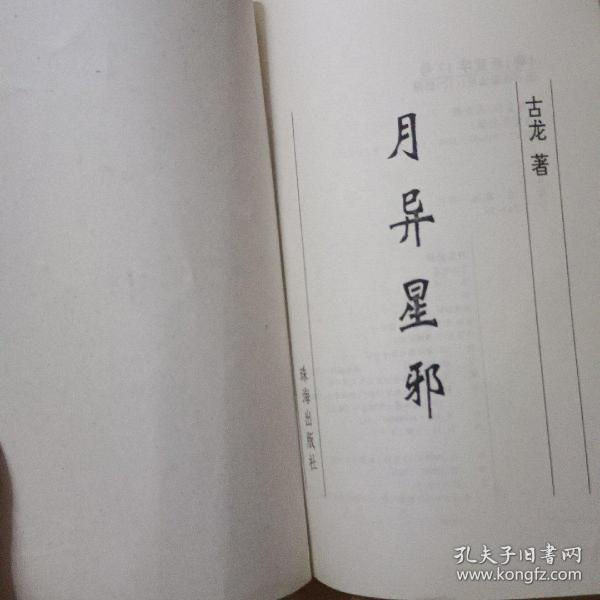 古龙 著
月异星邪
珠海出版社
孔夫子旧书网
www.kongfz.com